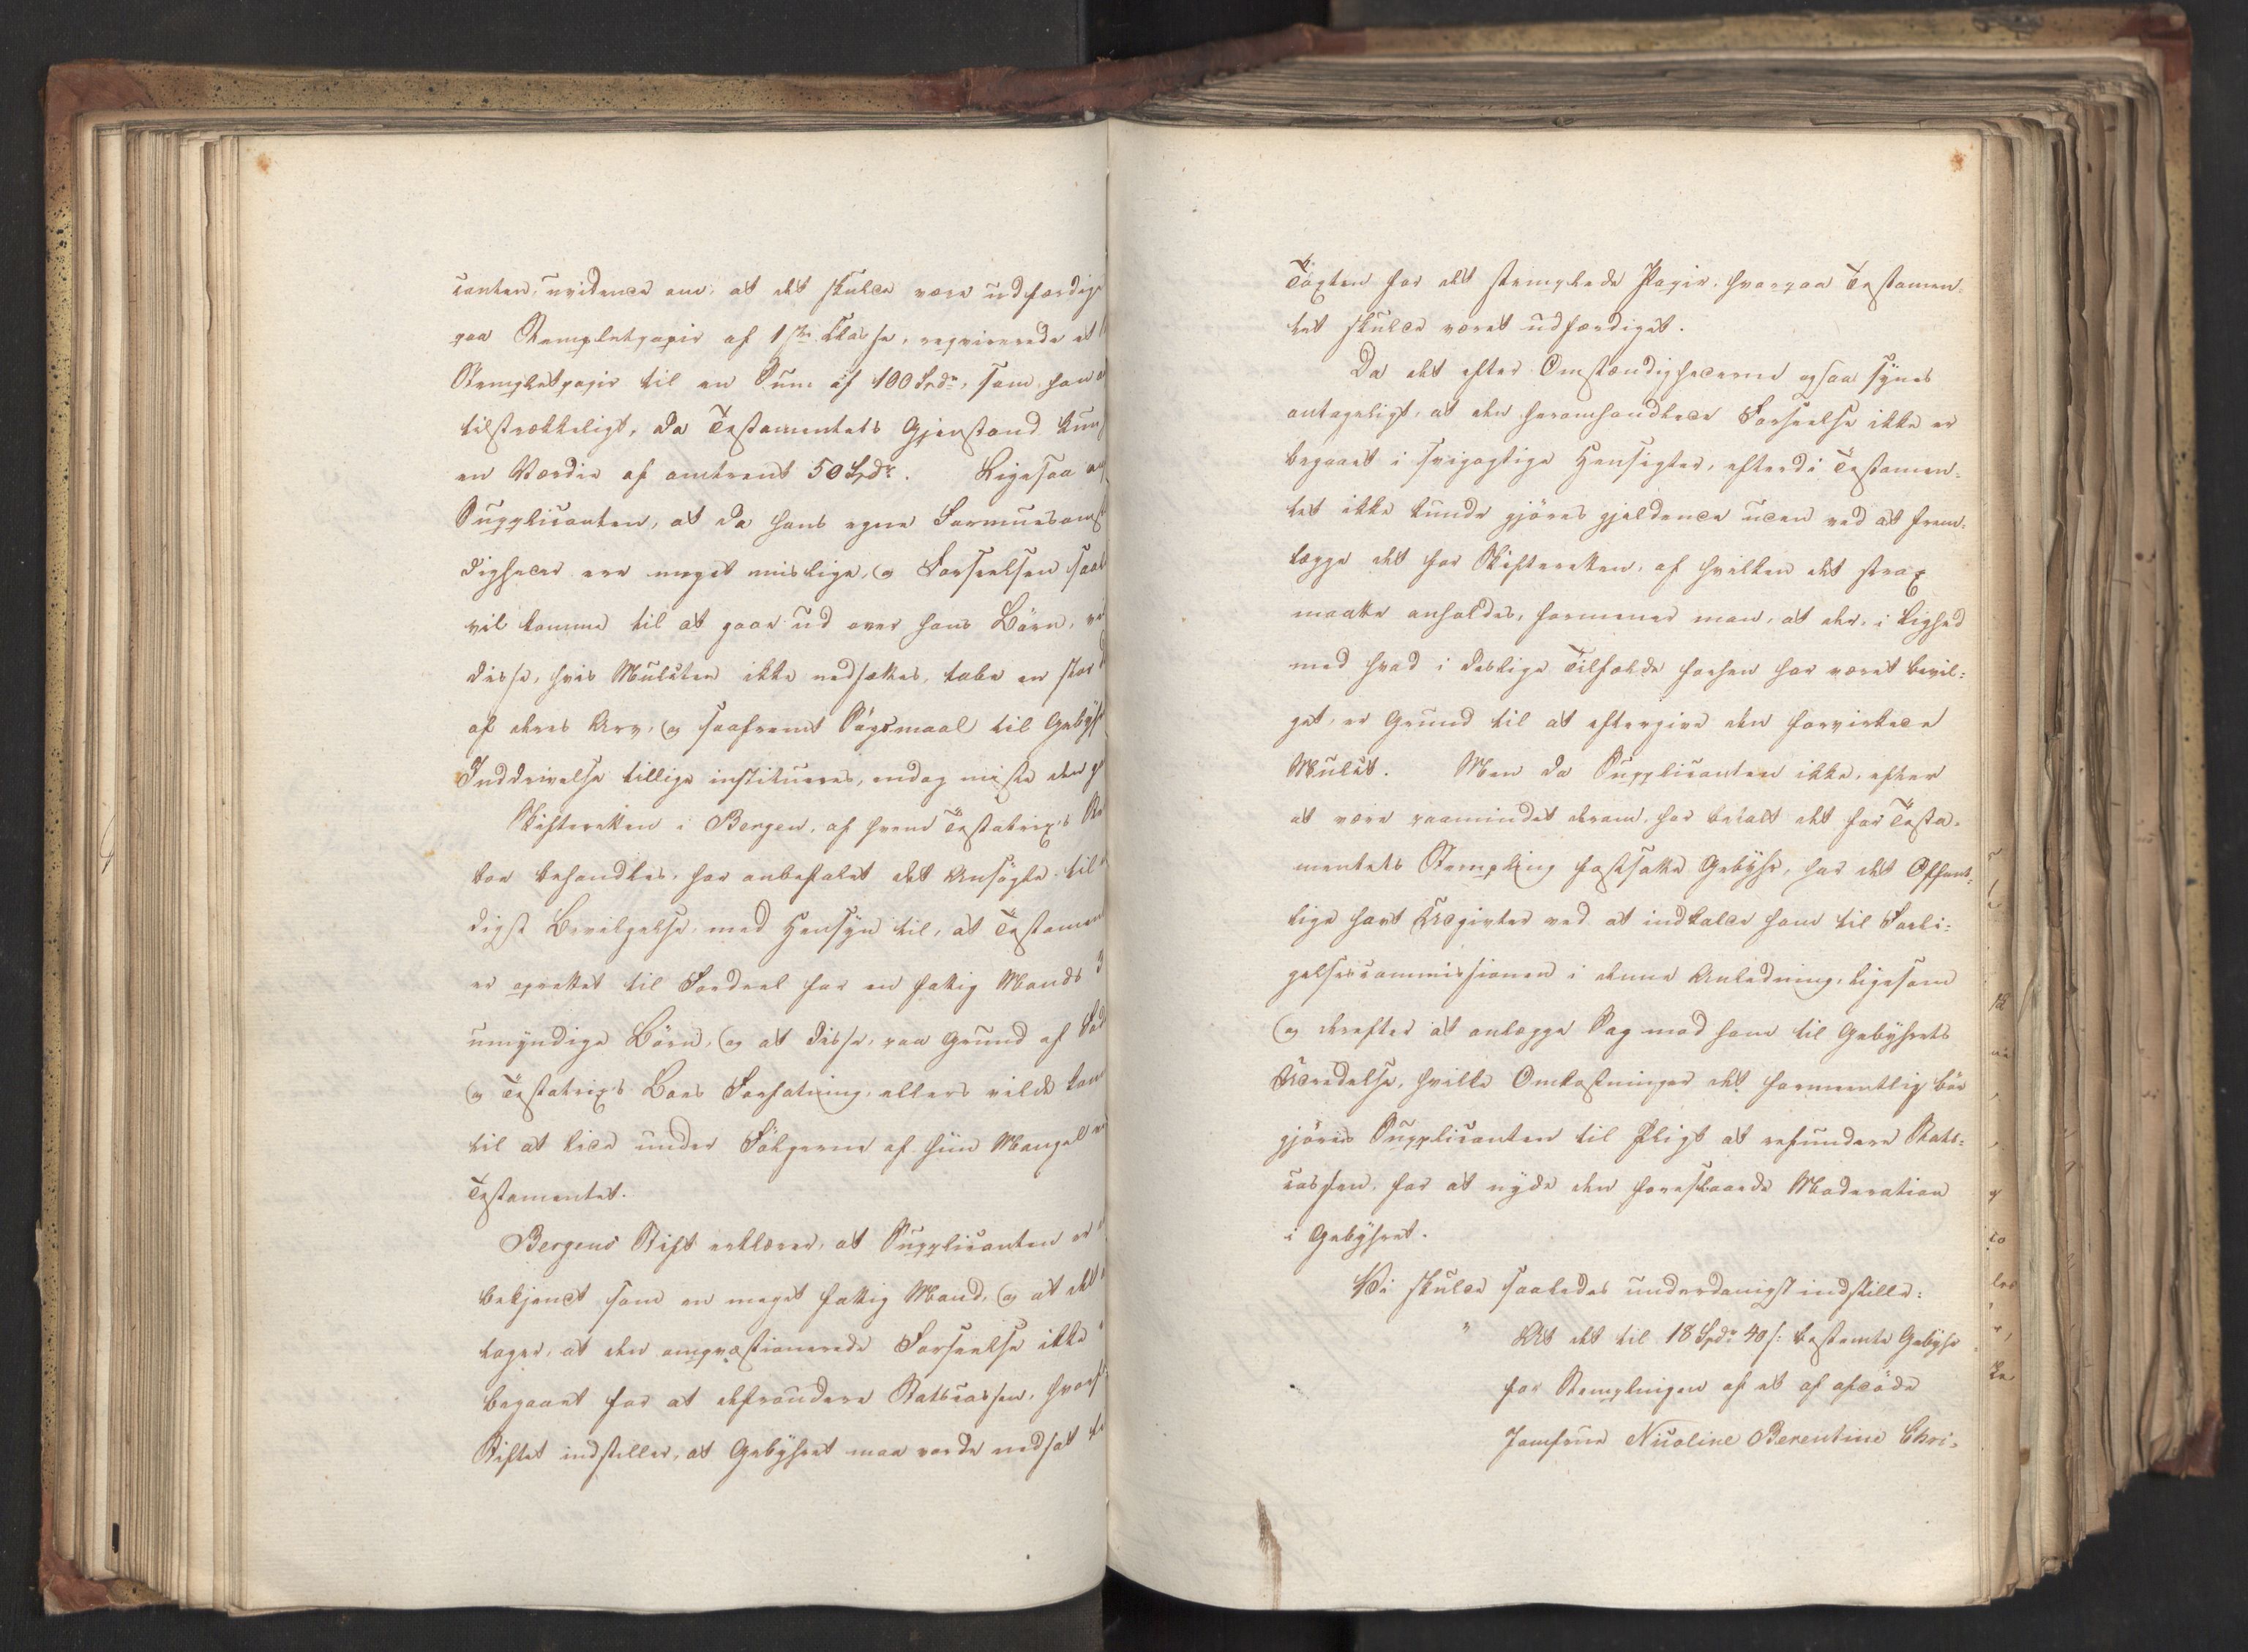 canten, uvidende om, at det skulde være udfærdige
paa Stempletpapir af 1ste Klasse, reqvirerede et
Stempletpapir til en Sum af 100 Spdr, som han
tilstrækkeligt, da Testamentets Gjenstand kun
en Værdie af omtrent 50 Spdr. Ligesaa
Supplicanten, at da hans egne Formuesomst
digheder ere meget mislige, og Forseelsen saal
vil komme til at gaae ud over hans Börn, vi
disse, hvis Mulcten ikke nedsættes, tabe en stor
af deres Arv, og saafremt Sögsmaal til Gebyhr
Inddrivelse tillige institueres, endog miste den
Skifteretten i Bergen, af hvem Testatrix's
boe behandles, har anbefalet det Ansögte til
digst Bevilgelse, med Hensyn til, at Testamen
er oprettet til Fordeel for en fattig Mands 3
umyndige Börn, og at disse, paa Grund af
og Testatrix's Boes Forfatning, ellers vilde kom
til at lide under Fölgerne af hiin Mangel
Testamentet.
Bergens Stift erklærer, at Supplicanten er
bekjendt som en meget fattig Mand, og at det
tager, at den omqvæstionerede Forseelse ikke
begaaet for at defraudere Statscassen, hvorf
Stiftet indstiller, at Gebyhret maa vorde nedsat
Taxten for det stemplede Papir, hvorpaa Testamen-
tet skulde været udfærdiget.
Da det efter Omstændighederne ogsaa synes
antageligt, at den heromhandlede Forseelse ikke er
begaaet i svigagtige Hensigter, efterdi Testamen-
tet ikke kunde gjöres gjeldende uden ved at frem-
lægge det for Skifteretten, af hvilken det strax
maatte anholdes, formener man, at der, i Lighed
med hvad i deslige Tilfælde forhen har været bevil-
get, er Grund til at eftergive den forvirkede
Mulct. Men da Supplicanten ikke, efter
at være paamindet derom, har betalt det for Testa-
mentets Stempling fastsatte Gebyhr, har det Offent-
lige havt Udgivter ved at indkalde ham til Forli-
gelsescommissionen i denne Anledning, ligesom
og derefter at anlægge Sag mod ham til Gebyhrets
Udredelse, hvilke Omkostninger det formeentlig bör
gjöres Supplicanten til Pligt at refundere Stats-
cassen, for at nyde den foreslaaede Moderation
i Gebyhret.
Vi skulde saaledes underdanigst indstille:
" At det til 18 Spdr 40 s: bestemte Gebyhr
for Stemplingen af et af afdöde
Jomfrue Nicoline Berentine Chri-